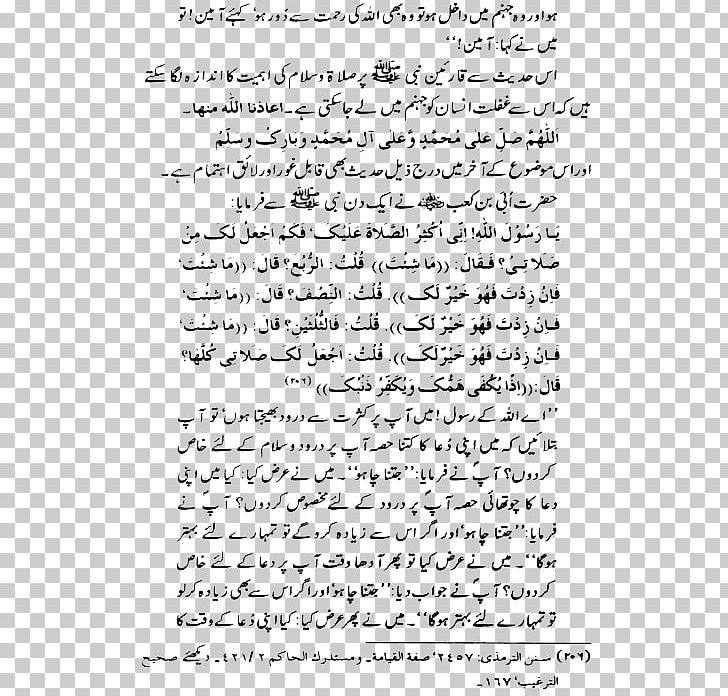 ہو اور وہ جہنم میں داخل ہو تو وہ بھی اللہ کی رحمت سے دُور ہو' کہئے آمین! تو
میں نے کہا: آمین!''
اس حدیث سے قارئین نبی ﷺ پر صلاۃ وسلام کی اہمیت کا اندازہ لگا سکتے
ہیں کہ اس سے غفلت انسان کو جہنم میں لے جا سکتی ہے۔ اعاذنا اللہ منھا۔
اَللّٰھُمَّ صَلِّ عَلٰی مُحَمَّدٍ وَّعَلٰی آلِ مُحَمَّدٍ وَبَارِکْ وَسَلِّمْ
اور اس موضوع کے آخر میں درج ذیل حدیث بھی قابل غور اور لائق اہتمام ہے۔
حضرت اُبی بن کعب ؓ نے ایک دن نبی ﷺ سے فرمایا:
یَا رَسُوْلَ اللّٰہِ! اِنِّی اُکْثِرُ الصَّلَاۃَ عَلَیْکَ' فَکَمْ اَجْعَلُ لَکَ مِنْ
صَلَاتِیْ؟ فَقَالَ: ((مَا شِئْتَ)) قُلْتُ: الرُّبُعَ؟ قَالَ: ((مَا شِئْتَ'
فَاِنْ زِدْتَ فَھُوَ خَیْرٌ لَکَ)). قُلْتُ: النِّصْفَ؟ قَالَ: ((مَا شِئْتَ'
فَاِنْ زِدْتَ فَھُوَ خَیْرٌ لَکَ)). قُلْتُ: فَالثُّلُثَیْنِ؟ قَالَ: ((مَا شِئْتَ'
فَاِنْ زِدْتَ فَھُوَ خَیْرٌ لَکَ)). قُلْتُ: اَجْعَلُ لَکَ صَلَاتِی کُلَّھَا؟
قَالَ: ((اِذًا یُکْفٰی ھَمُّکَ وَیُکَفَّرُ ذَنْبُکَ)) (۲۰۶)
''اے اللہ کے رسول! میں آپ پر کثرت سے درود بھیجتا ہوں' تو آپ
بتلائیں کہ میں اپنی دُعا کا کتنا حصہ آپ پر درود وسلام کے لئے خاص
کر دوں؟ آپؐ نے فرمایا: ''جتنا چاہو''۔ میں نے عرض کیا: کیا میں اپنی
دعا کا چوتھائی حصہ آپؐ پر درود کے لئے مخصوص کر دوں؟ آپؐ نے
فرمایا: ''جتنا چاہو' اور اگر اس سے زیادہ کرو گے تو تمہارے لئے بہتر
ہوگا''۔ میں نے عرض کیا تو پھر آدھا وقت آپ پر دعا کے لئے خاص
کر دوں؟ آپؐ نے جواب دیا: ''جتنا چاہو' اور اگر اس سے بھی زیادہ کر لو
تو تمہارے لئے بہتر ہوگا''۔ میں نے پھر عرض کیا: کیا اپنی دُعا کے وقت کا
(۲۰۶) سنن الترمذی: ۲۴۵۷' صفۃ القیامۃ۔ ومستدرک الحاکم ۲/۴۲۱۔ دیکھئے صحیح
الترغیب' ۱۶۷۔